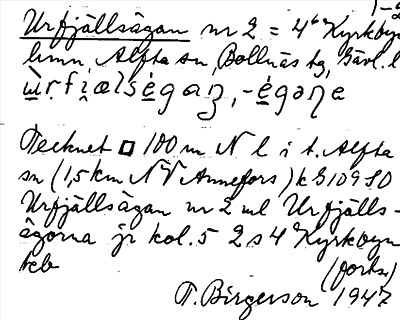 1-2
Urfjällsågan nr 2 = 4⁶ Kyrkbyn
limn, Alfta sn, Bollnäs tg, Gävl. l
ùrfjælségaŋ, -égəŋe
Tecknet □ 100 m N l i t. Alfta
sn (1,5 km NV Annefors) kB 109 SO
Urfjällsågan nr 2 ml Urfjälls-
ågorna jr kol. 5 2 s 4⁶ Kyrkbyn
teb (forts.)
T. Birgerson 1947